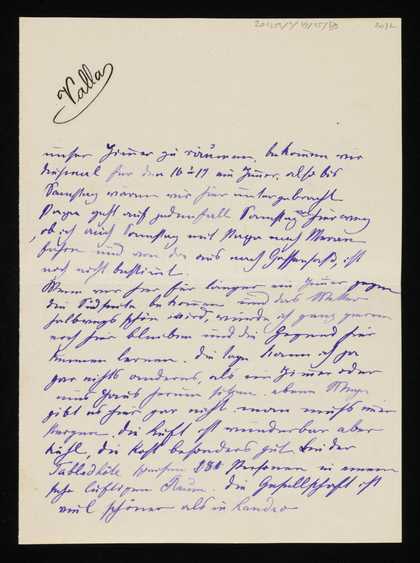 Valla
unser Zimmer zu räumen, bekommen wir
für den 16 u 17 ein Zimmer, also bis
Samstag wären wir hier untergebracht
Papa geht auf jeden Fall Samstag hier weg
ob ich auch Samstag mit Papa nach Meran
fahre und von da aus nach Gossensaß, ist
noch nicht bestimmt.
Wenn wir hier für länger ein Zimmer gegen
die Südseite bekommen und das Wetter
halbwegs schön wird, würde ich ganz gerne
noch hier bleiben und die Gegend hier
kennen lernen. Die Tage kann ich ja
gar nichts anderes, als im Zimmer oder
ums Haus herum sitzen. ebene Wege
gibt es hier gar nicht man muß nur
steigen, die Luft ist wunderbar aber
kühl, die Kost besonders gut bei der
Tabledhôte speisen 280 Personen in einem
sehr luftigen Raum. Die Gesellschaft ist
viel schöner als in Landro